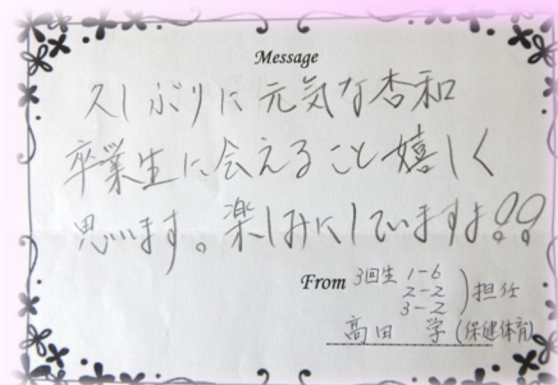 Message
久しぶりに元気な杏和
卒業生に会えること嬉しく
思います。楽しみにしていますよ!!
From 3回生 1-6
2-2
3-2
担任
高田 学 (保健体育)